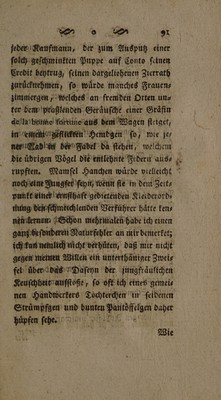 91
jeder Kaufmann, der zum Ausputz einer
solch geschminkten Puppe auf Conto seinen
Credit beytrug, seinen dargeliehenen Zierrath
zurücknehmen, so würde manches Frauen-
zimmergen, welches an fremden Orten un-
ter dem prahlenden Geräusche einer Gräfin
de la bonne fortune aus dem Wagen steiget,
in einem geflickten Hemdgen so, wie je-
ner Rab in der Fabel da stehen, welchem
die übrigen Vögel die entlehnte Federn aus-
rupften. Mamsel Hanchen würde vielleicht
noch eine Jungfer seyn, wenn sie in dem Zeit-
punkt einer ernsthaft gebietenden Kleiderord-
nung den schmeichlenden Verführer hätte ken-
nen lernen. Schon mehrmalen habe ich einen
ganz besonderen Naturfehler an mir bemerket;
ich kan nemlich nicht verhüten, daß mir nicht
gegen meinen Willen ein unterthäniger Zwei-
fel über das Daseyn der jungfräulichen
Keuschheit aufstoßt, so oft ich eines gemei-
nen Handwerkers Töchterchen in seidenen
Strümpfgen und bunten Pantöffelgen daher
hüpfen sehe.
Wie